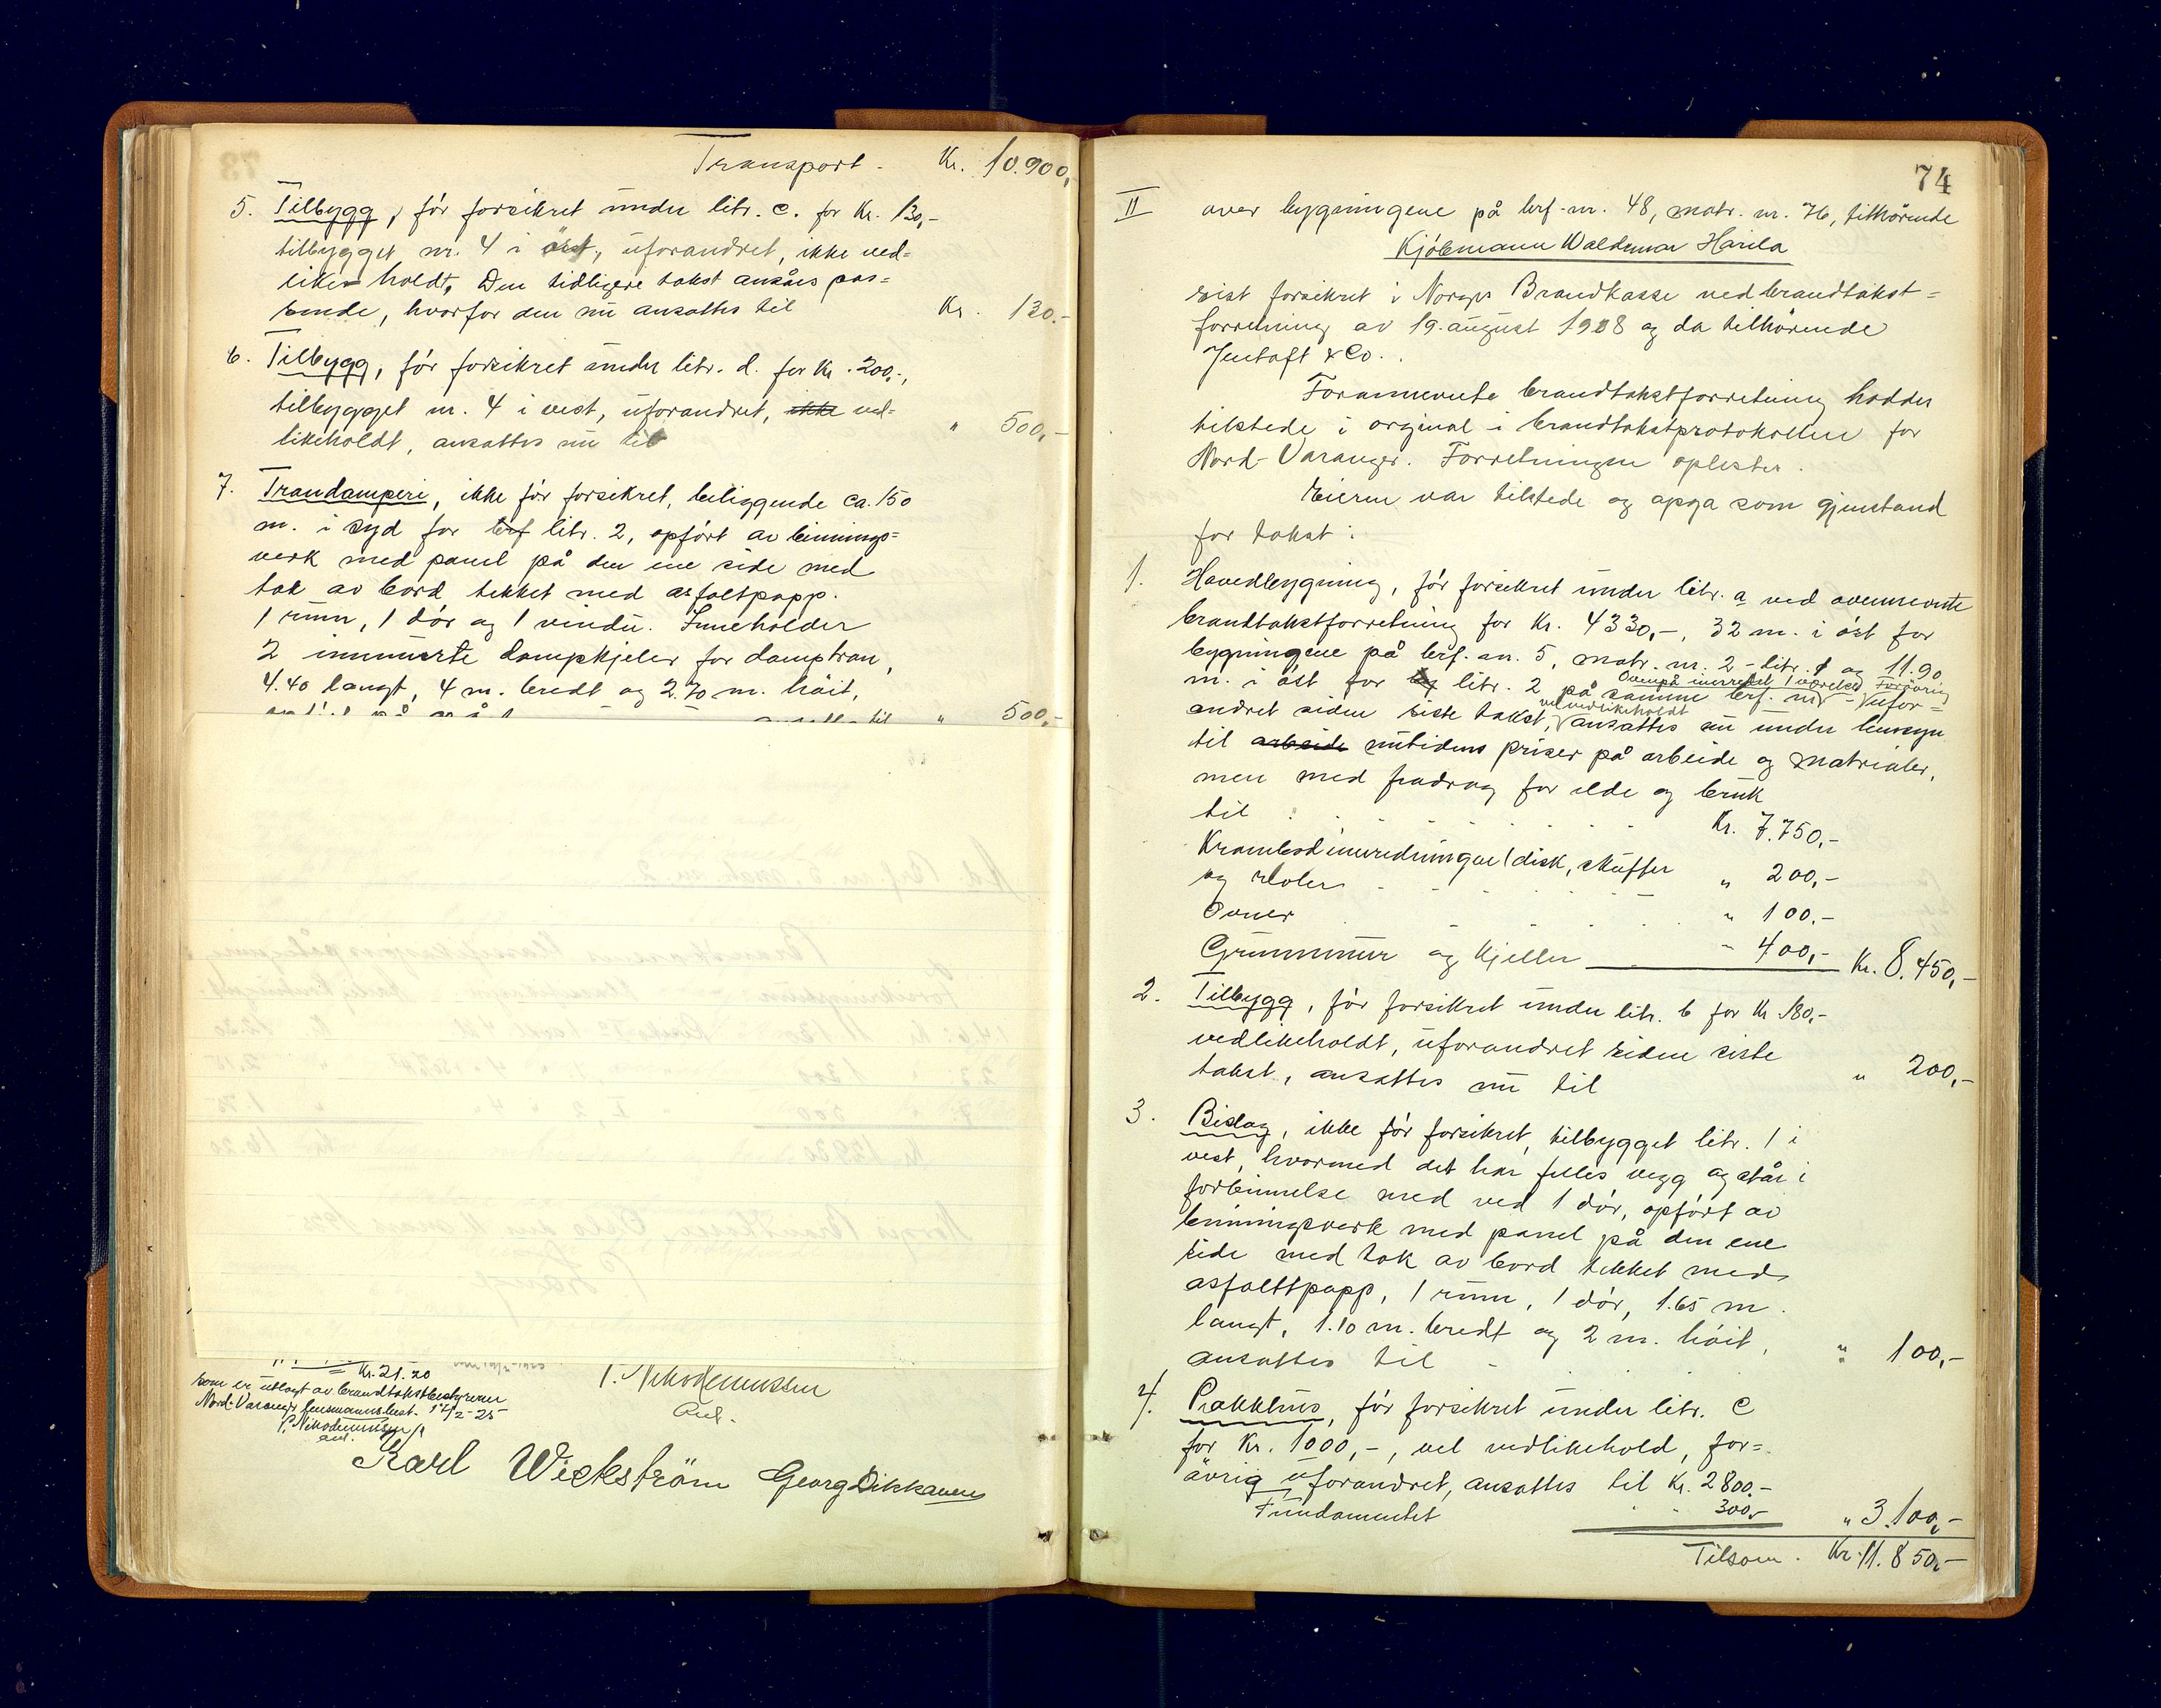 Transport - Kr. 10.900,
5. Tilbygg, før forsikret under litr. c. for Kr. 130,-
tilbygget nr. 4 i öst, uforandret, ikke ved=
likeholdt, Den tidligere takst ansåes pas=
sende, hvorfor den nu ansattes til Kr. 130.-
6. Tilbygg, før forsikret under litr. d. for Kr. 200,-,
tilbygget nr. 4 i vest, uforandret, ikke ved=
likeholdt, ansattes nu til " 500,-
7. Trandamperi, ikke før forsikret, beliggende ca. 150
m. i syd for brf litr. 2, opført av binnings=
verk med panel på den ene side med
tak av bord tekket med asfaltpapp.
1 rum, 1 dør og 1 vindu. Inneholder
2 inmurte dampkjeler for damptran,
4.40 langt, 4 m. bredt og 2.70 m. höit,
til " 500,-
Kr. 21.20
som er utlagt av brandtakstbestyreren
Nord-Varanger lensmannsbest. 17/2-25
P. Nikodemussen
anl.
P. Nikodemussen
Anl.
Karl Wickström Georg Dikkanen
74
II over bygningene på brf.-nr. 48, matr. nr. 76, tilhörende
Kjöbmann Waldemar Harila
sist forsikret i Norges Brandkasse ved brandtakst=
forretning av 19. august 1908 og da tilhörende
Jentoft & Co.
Forannevnte brandtakstforretning haddes
tilstede i orginal i brandtakstprotokollen for
Nord-Varanger. Forretningen oplestes.
Eieren var tilstede og opga som gjenstand
for takst:
1. Hovedbygning, før forsikret under litr. a ved ovennevnte
brandtakstforretning for Kr. 4330,-, 32 m. i öst for
bygningene på brf. nr. 5, matr. nr. 2 - litr. 1 og 11.90
m. i öst for litr. 2 på samme brf. nr. - Ovenpå innredet 1 værelse Forövrig ufor=
andret siden siste takst, vel vedlikeholdt ansattes nu under hensyn
til arbeide nutidens priser på arbeide og matrialer,
men med fradrag for elde og bruk
til Kr. 7.750,-
Krambodinnredningen (disk, skuffer
og reoler " 200,-
Ovner " 100.-
Grunnmur og Kjeller " 400,- Kr. 8.450,-
2. Tilbygg, før forsikret under litr. b for Kr 180,-
vedlikeholdt, uforandret siden siste
takst, ansattes nu til " 200,-
3. Bislag, ikke før forsikret, tilbygget litr. 1 i
vest, hvormed det har felles vegg og står i
forbinnelse med ved 1 dør, opført av
binningsverk med panel på den ene
side med tak av bord tekket med
asfaltpapp, 1 rum, 1 dør, 1.65 m.
langt, 1.10 m. bredt og 2 m. höit,
ansattes til - " 100,-
4. Pakkhus, før forsikret under litr. C
for Kr. 1000,-, vel vedlikehold, for=
övrig uforandret, ansattes til Kr. 2800.-
Fundamentet " 300,- " 3.100,-
Tilsam. Kr. 11.850,-